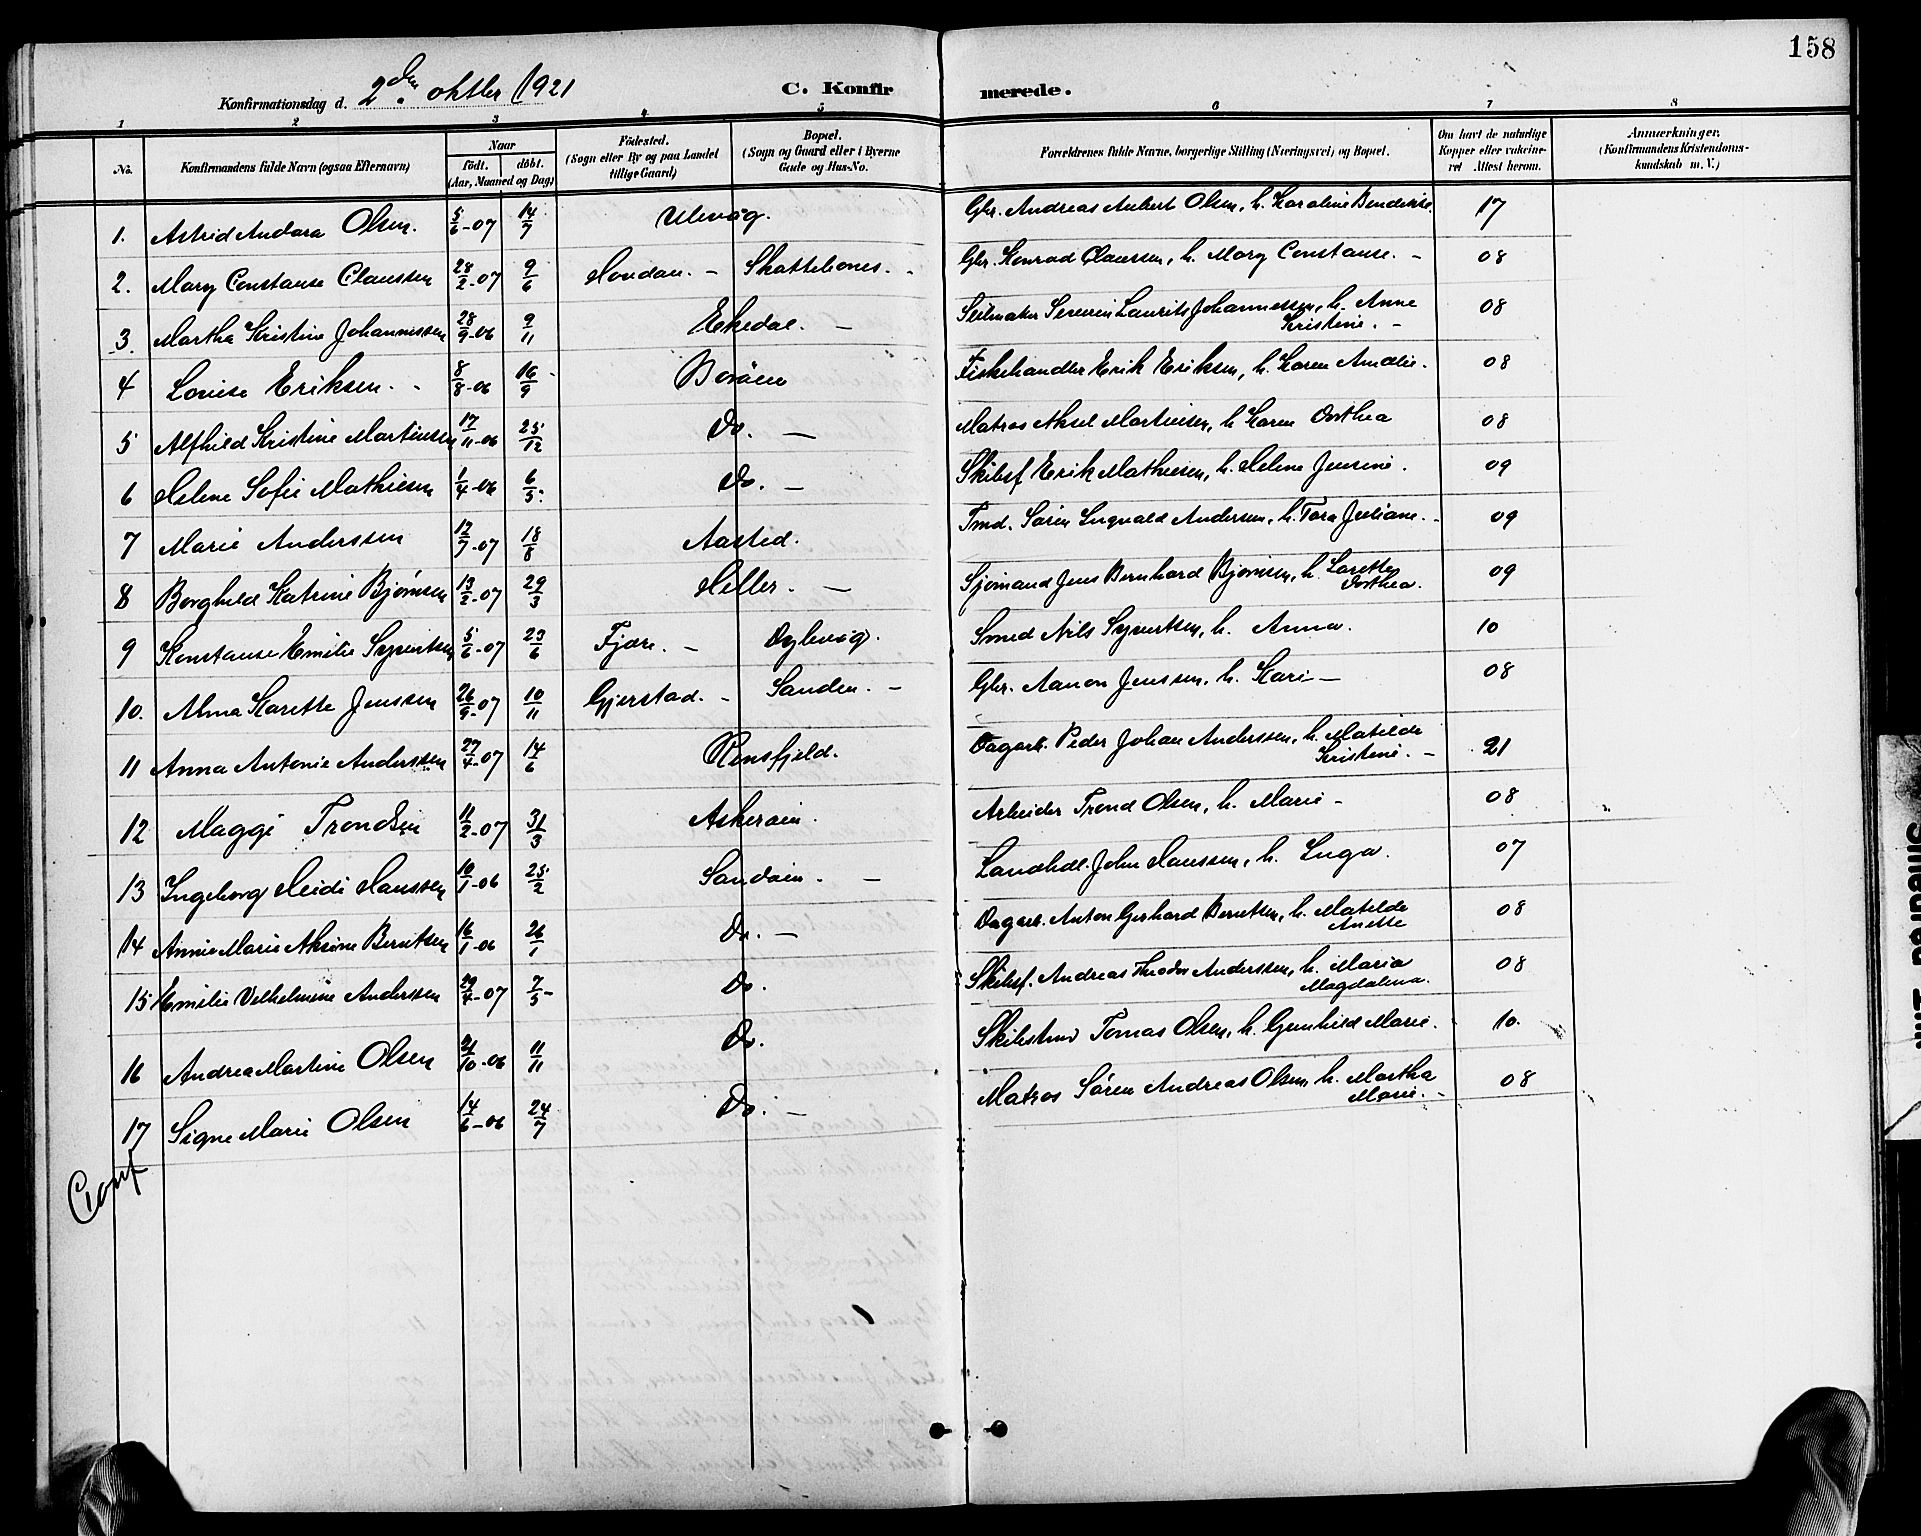 158
Konfirmationsdag d. 2den oktbr 1921 C. Konfirmerede.
1 2 3 4 5 6 7 8
No. Konfirmandens fulde Navn (ogsaa Efternavn) Naar født. døbt. (Aar, Maaned og Dag) Fødested. (Sogn eller By og paa Landet tillige Gaard) Bopæl. (Sogn og Gaard eller i Byerne Gade og Hus-No. Forældrenes fulde Navne, borgerlige Stilling (Næringsvei) og Bopæl. Om havt de naturlige Kopper eller vaccineret Attest herom. Anmærkninger. (Konfirmandens Kristendomskundskab m. V.)
1. Astrid Andora Olsen. 5/6-07 14/7 Ulevåg. Gbr. Andreas Aubert Olsen, h. Karoline Bendikse. 17
2. Mary Constanse Claussen 28/2-07 9/6 Hovdan. - Skottebones. - Gbr. Konrad Claussen, h. Mary Constanse. - 08
3. Martha Kristine Johannessen 28/9-06 9/11 Ekedal. - Seilmaker Severin Laurits Johannessen, h. Anne Kristine. - 08
4 Louise Eriksen. - 8/8-06 16/9 Borøen Fiskehandler Erik Eriksen, h. Karen Amalie. 08
5 Alfhild Kristine Martinsen 17/11-06 25/12 Do. - Matros Aksel Martinsen, h Karen Oorthea 08
6 Helene Sofie Mathiesen 1/4-06 6/5. Do. - Skibsf Erik Mathiesen, h. Helene Jensine. 09
7 Marie Anderssen 12/7-07 18/8 Aasted. Tmd. Søren Ingvald Andersen, h. Tora Juliane. - 09
8 Borghild Katrine Bjørnsen 13/2-07 29/3 Heller. - Sjømand Jens Bernhard Bjørnsen, h. Lorette Dorthea. 09
9 Konstanse Emilie Syvertsen 5/6-07 23/6 Fjære. - Dylevåg. Smed Nils Syvertsen, h. Anna. 10
10. Alma Karette Jenssen 26/9-07 10/11 Gjerstad. - Sanden. - Gbr. Aanon Jenssen, h. Kari - 08
11 Anna Antonie Anderssen 27/4-07 14/6 Rensfjeld. Dagarb. Peder Johan Anderssen, h. Matilde Kristine. - 21
12 Maggi Trondsen 11/2-07 31/3 Askerøen. Arbeider Trond Olsen, h. Marie - 08
13 Ingeborg Heidi Hanssen 10/1-06 25/2 Sandøen. - Landhdl. John Hanssen, h. Inga. 07
14 Annie Marie Aksine Berntsen 16/1-06 26/1 Do. - Dagarb. Anton Gerhard Berntsen, h. Matilde Anette 08
15 Emilie Vilhelmine Anderssen 29/4-07 7/5- Do. Skibsf. Andreas Theodor Anderssen, h. Maria Magdalena. 08
16 Andrea Martine Olsen 21/10-06 11/11 Do. Skibstmd Tomas Olsen, h. Gunhild Marie. 10.
17 Signe Marie Olsen 14/6-06 24/7 Do. - Matros Søren Andreas Olsen, h. Martha Marie. - 08
Conf